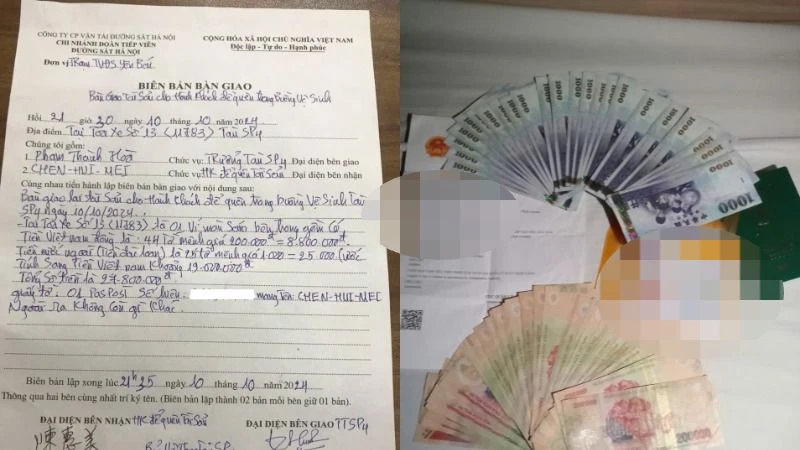 CÔNG TY CP VẬN TẢI ĐƯỜNG SẮT HÀ NỘI
CHI NHÁNH ĐOÀN TIẾP VIÊN
ĐƯỜNG SẮT HÀ NỘI
CỘNG HÒA XÃ HỘI CHỦ NGHĨA VIỆT NAM
Độc lập - Tự do - Hạnh phúc
Đơn vị Trạm TVĐS Yên Bái
BIÊN BẢN BÀN GIAO
Bàn giao Tài Sản cho Hành khách để quên trong buồng Vệ Sinh
Hồi 21 giờ 20 ngày 10 tháng 10 / 2024
Địa điểm Tại Toa Xe Số 13 (11783) Tàu SP4
Chúng tôi gồm:
1. Phạm Thành Hoà Chức vụ: Trưởng Tàu SP4 Đại diện bên giao
2. CHEN-HUI-MEI Chức vụ: HK để quên Tài Sản Đại diện bên nhận
Cùng nhau tiến hành lập biên bản bàn giao với nội dung sau:
Bàn giao lại Tài Sản cho Hành Khách để quên trong buồng Vệ Sinh Tàu
SP4 ngày 10/10/2024.
- Tại Toa Xe Số 13 (11783) là 01 Ví màu bên trong gồm có
Tiền Việt nam đồng là: 44 Tờ mệnh giá 200.000đ = 8.800.000đ
Tiền nước ngoài (Tiền đài loan) là 25 Tờ mệnh giá 1.000 = 25.000 (ước
tính Sang Tiền Việt nam Khoảng 19.000.000đ
Tổng Số trên là 27.800.000đ
giấy tờ: 01 PasPosl Số hiệu: mang Tên: CHEN-HUI-MEI
Ngoài ra Không còn gì khác.
Biên bản lập xong lúc 21h35 ngày 10 tháng 10 / 2024
Thông qua hai bên cùng nhất trí ký tên. (Biên bản lập thành 02 bản mỗi bên giữ 01 bản).
ĐẠI DIỆN BÊN NHẬN HK để quên Tài Sản
ĐẠI DIỆN BÊN GIAO TTSP4
陳惠美
1000
1000
1000
1000
1000
1000
200000